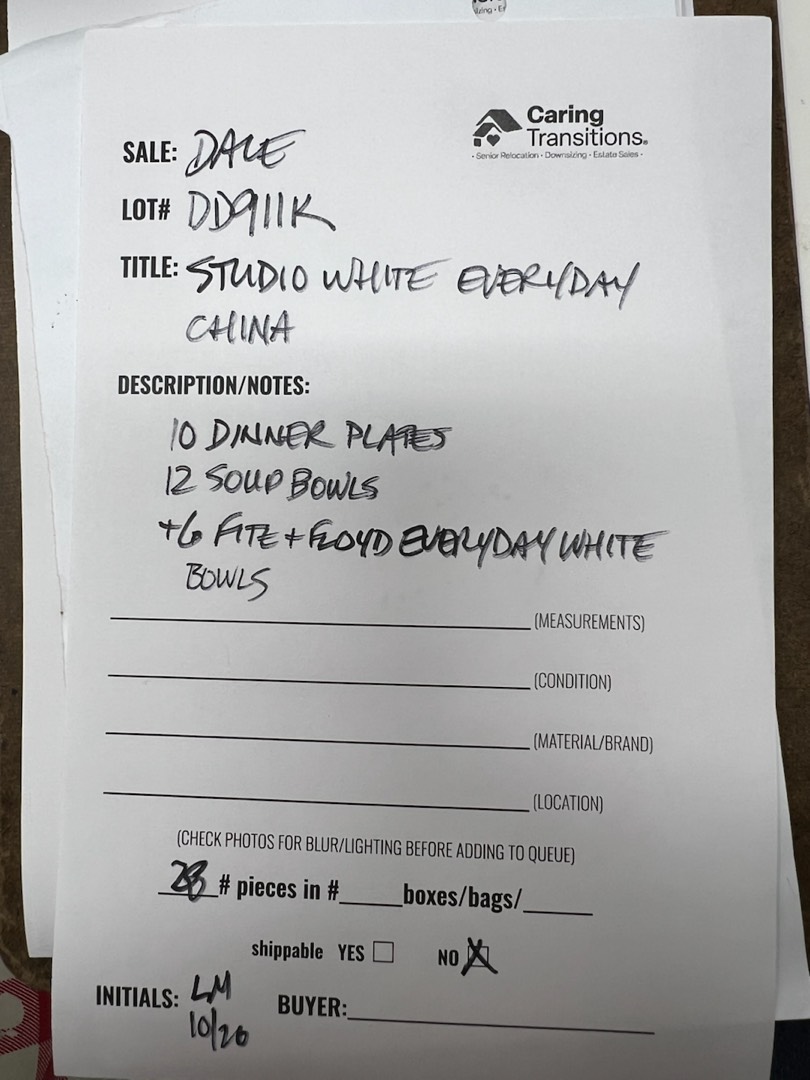 Caring
Transitions®
• Senior Relocation • Downsizing • Estate Sales •
SALE: DALE
LOT# DD911K
TITLE: STUDIO WHITE EVERYDAY
CHINA
DESCRIPTION/NOTES:
10 DINNER PLATES
12 SOUP BOWLS
+6 FITZ + FLOYD EVERYDAY WHITE
BOWLS
(MEASUREMENTS)
(CONDITION)
(MATERIAL/BRAND)
(LOCATION)
(CHECK PHOTOS FOR BLUR/LIGHTING BEFORE ADDING TO QUEUE)
28 # pieces in # boxes/bags/
shippable YES NO X
INITIALS: LM BUYER:
10/26